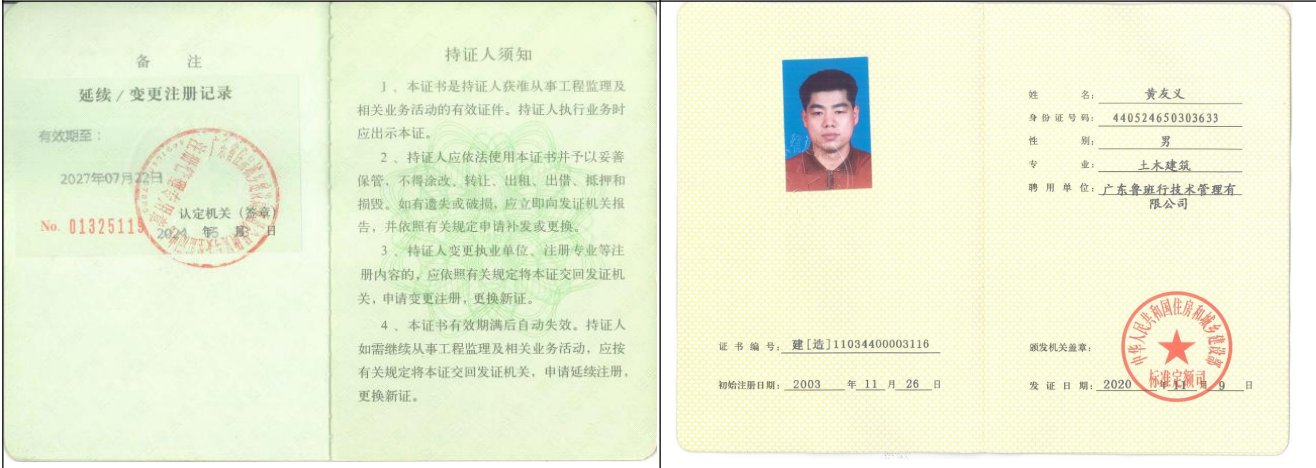 备 注
延续 / 变更注册记录
有效期至：
2027年07月22日
认定机关（签章）
No. 01325115
持证人须知
1 、本证书是持证人获准从事工程监理及
相关业务活动的有效证件。持证人执行业务时
应出示本证。
2 、持证人应依法使用本证书并予以妥善
保管，不得涂改、转让、出租、出借、抵押和
损毁。如有遗失或破损，应立即向发证机关报
告，并依照有关规定申请补发或更换。
3 、持证人变更执业单位、注册专业等注
册内容的，应依照有关规定将本证交回发证机
关，申请变更注册，更换新证。
4 、本证书有效期满后自动失效。持证人
如需继续从事工程监理及相关业务活动，应按
有关规定将本证交回发证机关，申请延续注册，
更换新证。
证 书 编 号： 建[造]11034400003116
初始注册日期： 2003 年 11 月 26 日
姓 名： 黄友义
身 份 证 号 码： 440524650303633
性 别： 男
专 业： 土木建筑
聘 用 单 位： 广东鲁班行技术管理有
限公司
颁发机关盖章：
中华人民共和国住房和城乡建设部
标准定额司
发 证 日 期： 2020 年 11 月 9 日